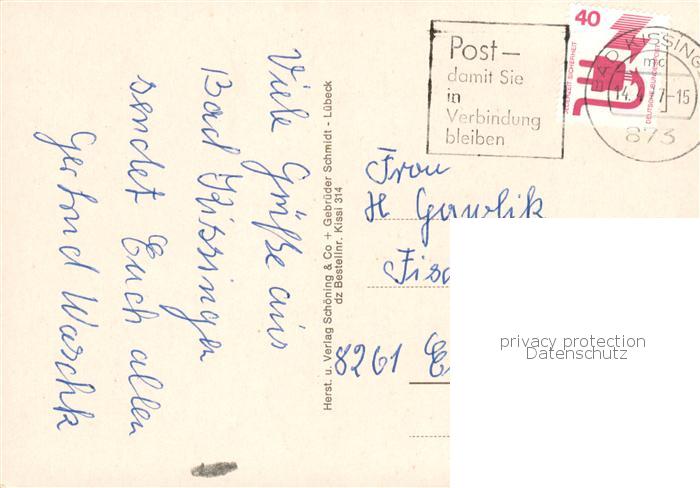 Viele Grüße aus
Bad Kissingen
sendet Euch allen
Gertrud Waschk
Herst. u. Verlag Schöning & Co + Gebrüder Schmidt - Lübeck
dz Bestellnr. Kissi 314
Post–
damit Sie
in
Verbindung
bleiben
40
JEDERZEIT SICHERHEIT
DEUTSCHE BUNDESPOST
BAD KISSING
mc
14. 7-15
873
Frau
H Gawlik
8261
privacy protection
Datenschutz